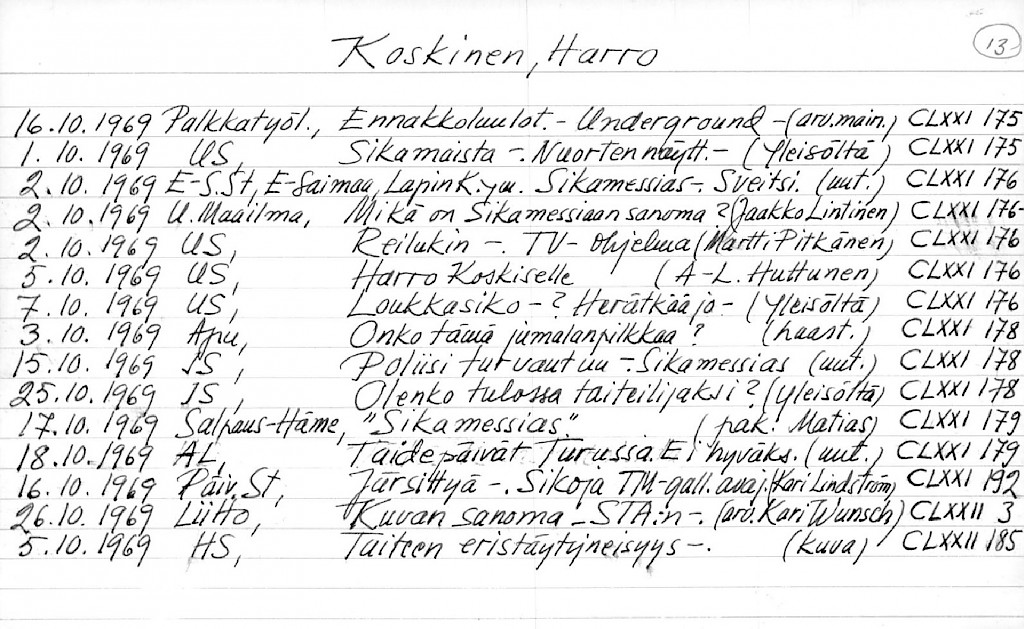 13
Koskinen, Harro
16.10.1969 Palkkatyöl., Ennakkoluulot.- Underground -(arv.main.) CLXXI 175
1. 10. 1969 US, Sikamaista -. Nuorten näytt.- (Yleisöltä) CLXXI 175
2. 10. 1969 E-S.St, E-Saimaa, Lapin K. ym. Sikamessias-. Sveitsi. (uut.) CLXXI 176
2. 10. 1969 U. Maailma, Mikä on Sikamessiaan sanoma? (Jaakko Lintinen) CLXXI 176-
2. 10. 1969 US, Reilukin -. TV-ohjelma (Martti Pitkänen) CLXXI 176
5. 10. 1969 US, Harro Koskiselle (A-L. Huttunen) CLXXI 176
7. 10. 1969 US, Loukkasiko -? Herätkää jo - (Yleisöltä) CLXXI 176
3. 10. 1969 Apu, Onko tämä jumalanpilkkaa? (haast.) CLXXI 178
15. 10. 1969 IS, Poliisi turvautuu -. Sikamessias (uut.) CLXXI 178
25. 10. 1969 IS, Olenko tulossa taiteilijaksi? (Yleisöltä) CLXXI 178
17. 10. 1969 Salpaus-Häme, "Sikamessias" (pak. Matias) CLXXI 179
18. 10. 1969 AL, Taidepäivät Turussa. Ei hyväks. (uut.) CLXXI 179
16. 10. 1969 Päiv. St, Järsittyä -. Sikoja TM-gall. avaj. (Kari Lindström) CLXXI 192
26. 10. 1969 Liitto, Kuvan sanoma - STA:n -. (arv. Kari Wunsch) CLXXII 3
5. 10. 1969 HS, Taiteen eristäytyneisyys -. (kuva) CLXXII 185